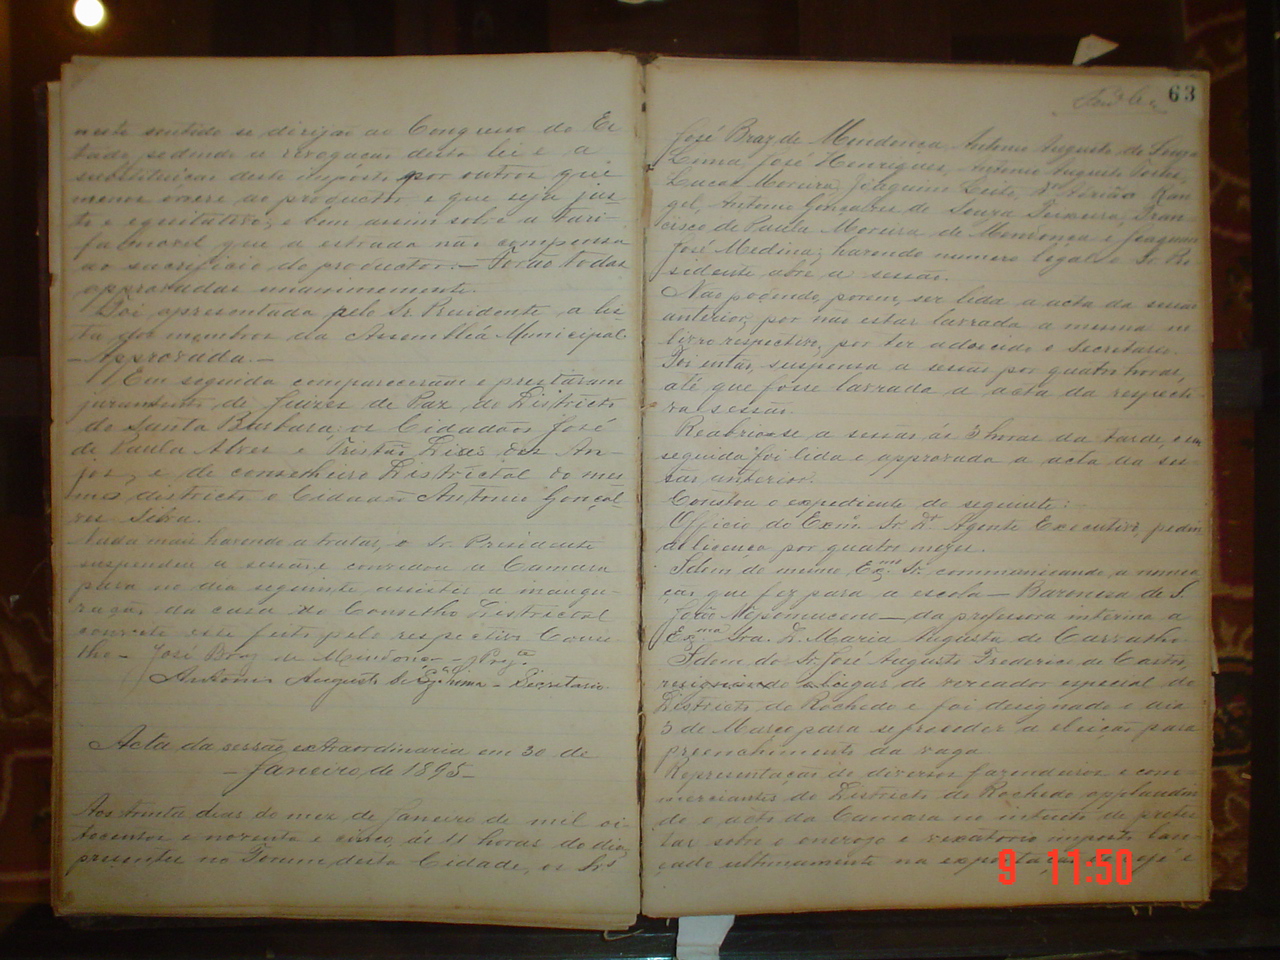 neste sentido se dirijão ao Congresso do Es
tado pedindo a revogação desta lei e a
substituição deste imposto por outros que
menos onere ao productor e que seja jus-
to e equitativo; e bem assim sobre a tari-
fa movel que a estrada não compensa
ao sacrificio do productor. — Forão todas
approvadas unanimemente.
Foi apresentada pelo Sr. Presidente a lis-
ta dos membros da Assembléa Municipal
— Approvada. —
Em seguida compareceram e prestaram
juramento de Juizes de Paz do Districto
de Santa Barbara os Cidadãos José
de Paula Alves e Tristão Lires dos An-
jos, e de conselheiro Districtal do mes
mo districto o Cidadão Antonio Gonçal-
ves Silva.
Nada mais havendo a tratar, o Sr. Presidente
suspendeu a sessão e convidou a Camara
para no dia seguinte assistir a inaugu-
ração da casa do Conselho Districtal
convite este feito pelo respectivo Conse-
lho — José Braz de Mendonça — Prez.e
Antonio Augusto de — Secretario
Acta da sessão extraordinaria em 30 de
— Janeiro, de 1895 —
Aos trinta dias do mez de Janeiro de mil oi-
tocentos e noventa e cinco, ás 11 horas do dia,
presentes no Forum desta Cidade, os Srs
63
José Braz de Mendonça, Antonio Augusto de Souza
Lima, José Henriques, Antonio Augusto
Lucas Moreira, Joaquim Leite, Dr. Adrião Ran-
gel, Antonio Gonçalves de Souza Teixeira, Fran-
cisco de Paula Moreira de Mendonça e Joaquim
José Medina; havendo numero legal o Sr. Pre
sidente abre a sessão.
Não podendo, porem, ser lida a acta da sessão
anterior, por não estar lavrada a mesma no
livro respectivo, por ter adoecido o Secretario.
Foi então, suspensa a sessão por quatro horas,
até que fosse lavrada a acta da respecti-
va sessão.
Reabrio-se a sessão ás 3 horas da tarde, e em
seguida foi lida e approvada a acta da ses-
são anterior.
Constou o expediente do seguinte:
Officio do Exm. Sr. Dr. Agente Executivo, pedin
do licença por quatro mezes.
Idem do mesmo Exmo. Sr. communicando a nomea
ção que fez para a escola — Baroneza de S.
João Nepomuceno — da professora interina a
Exma. Sra. D. Maria Augusta de Carvalho.
Idem do Sr. José Augusto Frederico de Castro,
resignando o cargo de vereador especial do
Districto do Rochedo e foi designado o dia
3 de Março para se proceder a eleição para
preenchimento da vaga
Representação de diversos fazendeiros e com-
merciantes do Districto do Rochedo applaudin
do o acto da Camara no intuito de protes
tar sobre o oneroso e vexatorio imposto lan-
çado ultimamente na exportação
9 11:50